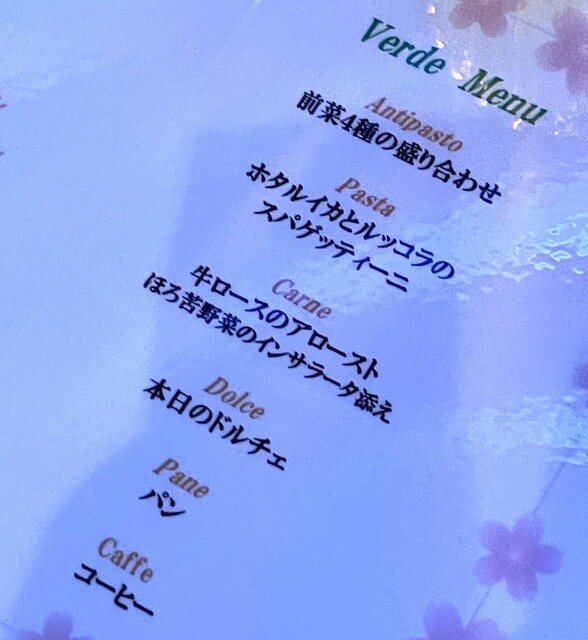 Verde Menu
Antipasto
前菜4種の盛り合わせ
Pasta
ホタルイカとルッコラの
スパゲッティーニ
Carne
牛ロースのアロースト
ほろ苦野菜のインサラータ添え
Dolce
本日のドルチェ
Pane
パン
Caffe
コーヒー